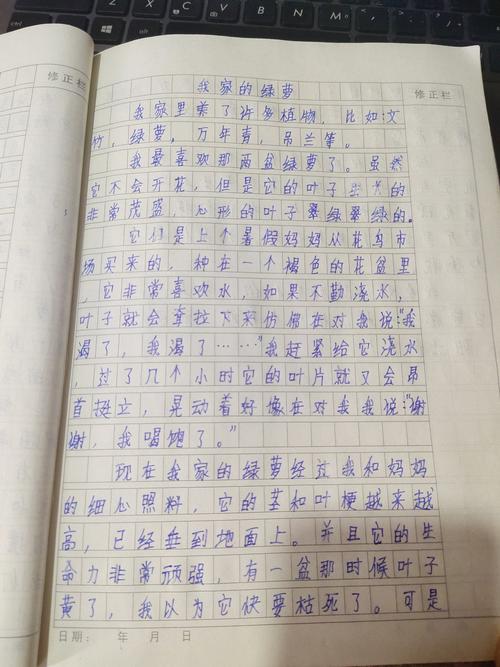 修正栏
修正栏
我家的绿萝
我家里养了许多植物，比如：文
竹，绿萝，万年青，吊兰等。
我最喜欢那两盆绿萝了。虽然
它不会开花，但是它的叶子长的
非常茂盛，心形的叶子翠绿翠绿的。
它们是上个暑假妈妈从花鸟市
场买来的，种在一个褐色的花盆里
，它非常喜欢水，如果不勤浇水，
叶子就会耷拉下来仿佛在对我说："我
渴了，我渴了……"我赶紧给它浇水
，过了几个小时它的叶片就又会昂
首挺立，晃动着好像在对我我说："谢
谢，我喝饱了。"
现在我家的绿萝经过我和妈妈
的细心照料，它的茎和叶梗越来越
高，已经垂到地面上。并且它的生
命力非常顽强，有一盆那时候叶子
黄了，我以为它快要枯死了。可是
日期： 年 月 日